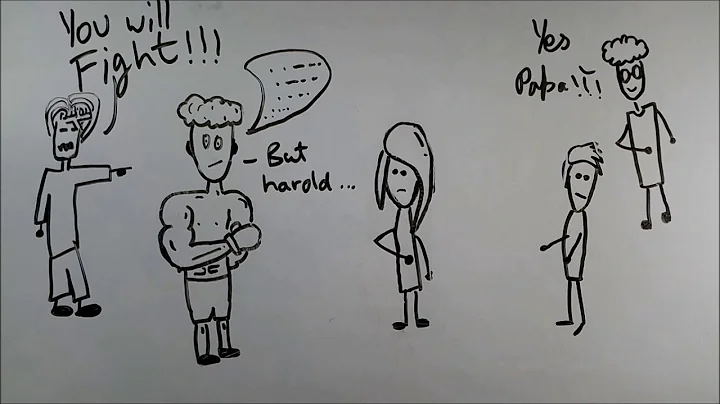 You will
Fight!!!
- But
harold...
Yes
Papa!!!